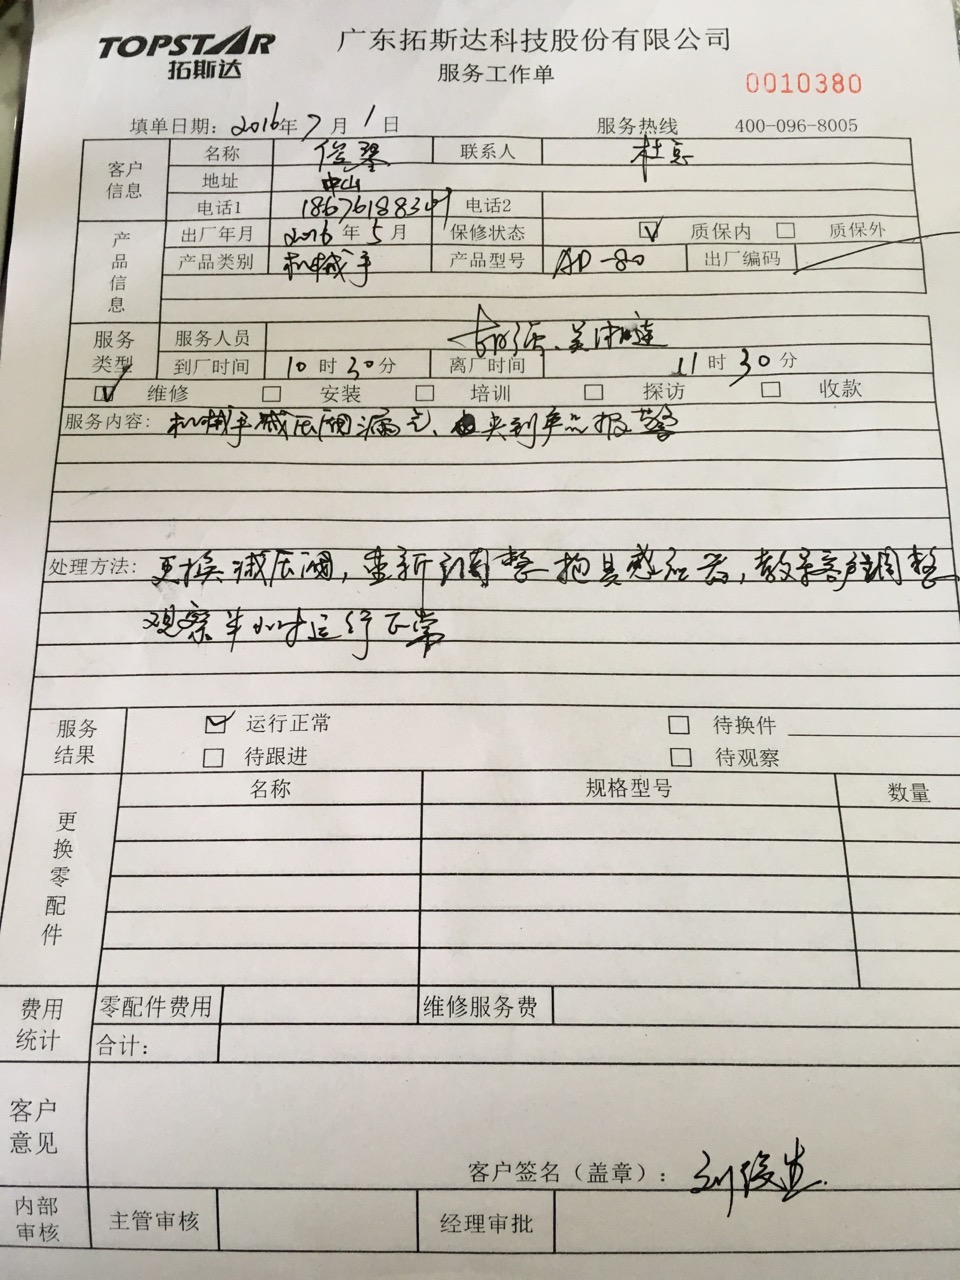 TOPSTAR
拓斯达
广东拓斯达科技股份有限公司
服务工作单
0010380
填单日期: 2016年7月1日
服务热线 400-096-8005
客户信息
名称
联系人 杜
地址 中山
电话1 186761883 电话2
产品信息
出厂年月 2016年5月 保修状态 质保内 质保外
产品类别 机械手 产品型号 AD-80 出厂编码
服务类型
服务人员
到厂时间 10时30分 离厂时间 11时30分
维修 安装 培训 探访 收款
服务内容: 机械手减压阀漏气、夹到产品报警
处理方法: 更换减压阀,重新调整抱具感应器,教导客户调整
观察半小时运行正常
服务结果
运行正常 待换件
待跟进 待观察
更换零配件
名称 规格型号 数量
费用统计
零配件费用 维修服务费
合计:
客户意见
客户签名(盖章): 刘俊
内部审核
主管审核 经理审批